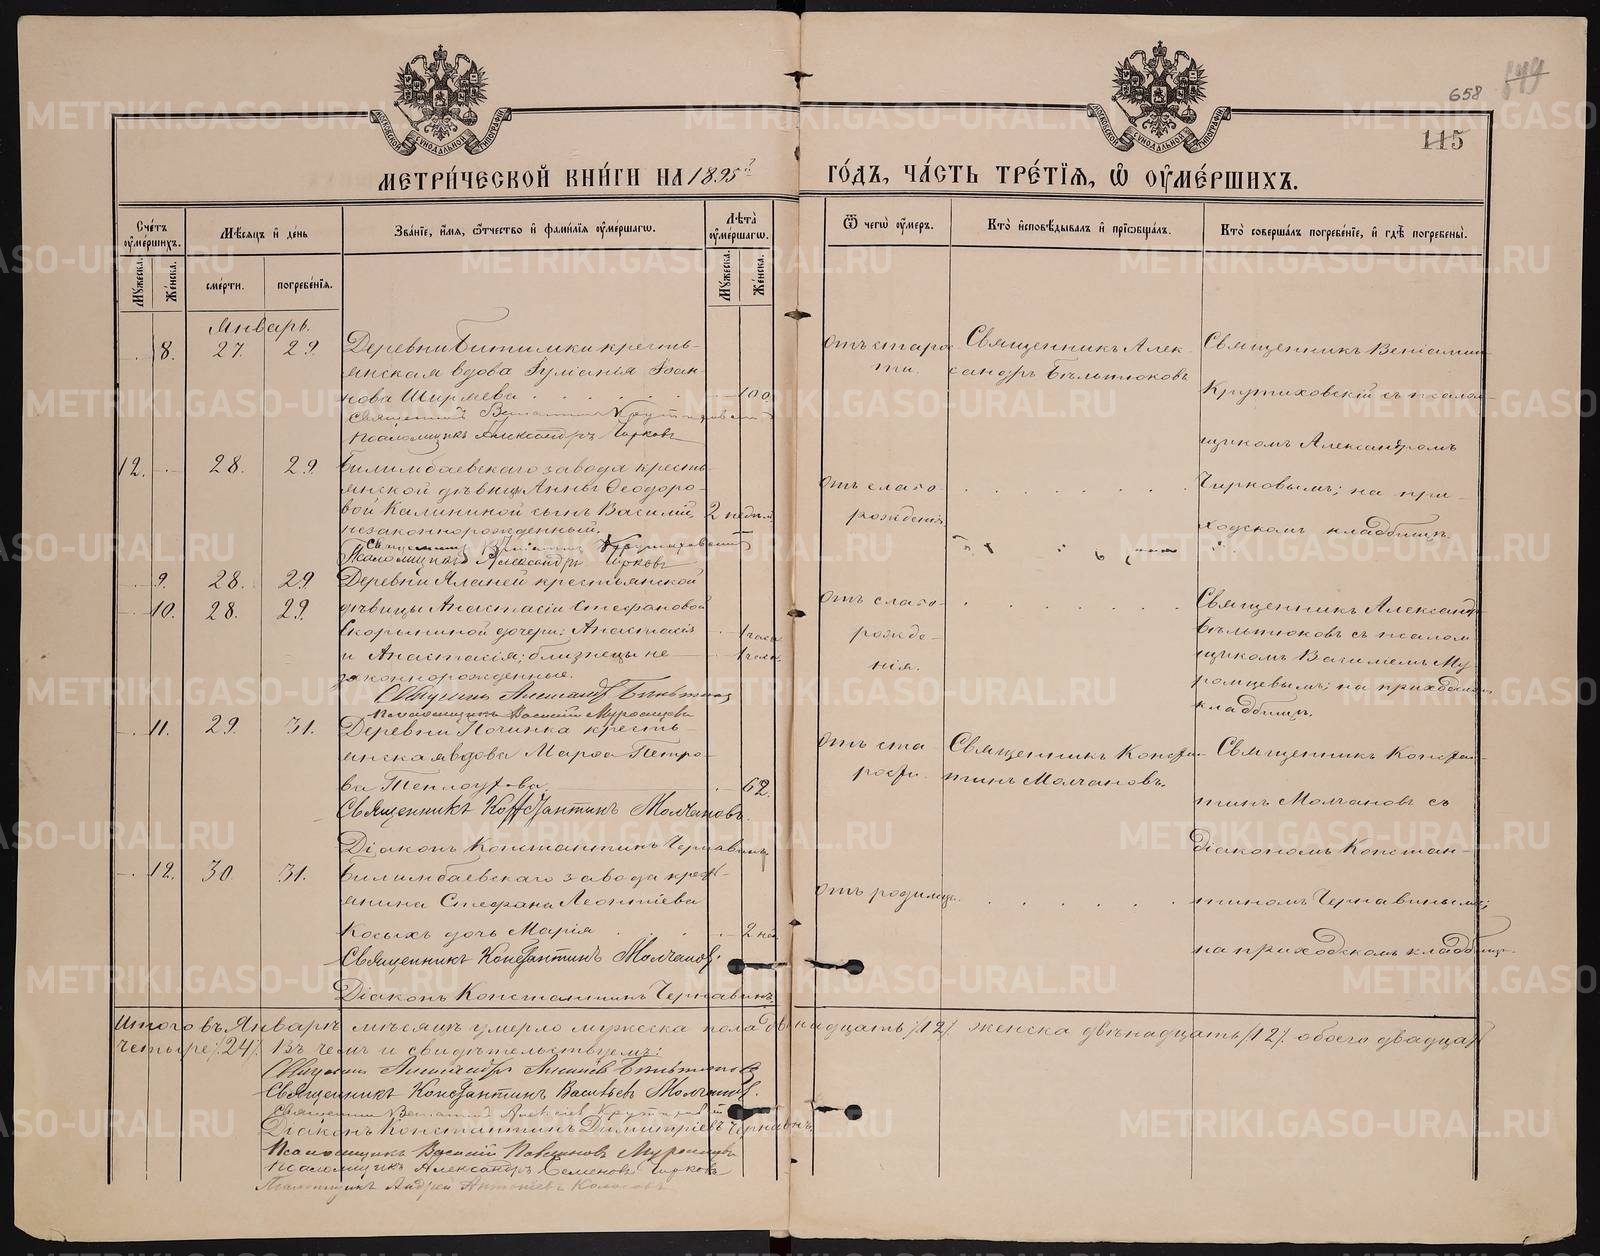 658
115
МЕТРИ́ЧЕСКОЙ КНИ́ГИ НА 1895 ГО́ДЪ, ЧА́СТЬ ТРЕ́ТІѦ, Ѽ ОУ҆МЕ́РШИХЪ.
Сче́тъ оу҆ме́ршихъ.
Мѣ́сѧцъ и҆ де́нь
Зва́нїе, и҆́мѧ, ѻ҆́тчество и҆ фами́лїѧ оу҆ме́ршагѡ.
Лѣ́та̀ оу҆ме́ршагѡ.
Ѿ чегѡ̀ оу҆́меръ.
Кто̀ и҆сповѣ́дывалъ и҆ прїѡбща́лъ.
Кто̀ соверша́лъ погребе́нїе, и҆ гдѣ̀ погребены̀.
Мꙋ́жеска.
Же́нска.
сме́рти.
погребе́нїѧ.
Мꙋ́жеска.
Же́нска.
Январь.
8. 27. 29. Деревни Битимки кресть-
янская вдова Гуліанія Іоан-
нова Ширяева 100
Священникъ Веніаминъ Крутиховский
Псаломщикъ Александръ Чирковъ
отъ старо-
сти.
Священникъ Алек-
сандръ Бѣльтюковъ
Священникъ Веніамин
Крутиховскій съ псалом-
щикомъ Александромъ
Чирковымъ; на при-
ходскомъ кладбищѣ.
12. 28. 29 Билимбаевскаго завода кресть-
янской дѣвицы Анны Ѳеодоро-
вой Калининой сынъ Василій, 2 недѣли
незаконнорожденный.
Священникъ Веніаминъ Крутиховский
Псаломщикъ Александръ Чирковъ
отъ слабо-
рожденія
9. 28. 29 Деревни Яланей крестьянской
10. 28. 29. дѣвицы Анастасіи Стефановой
Скорыниной дочери: Анастасія 1 часа
и Анастасія; близнецы не 1 часа
законнорожденные.
Священникъ Александръ Бѣльтюковъ
Псаломщикъ Василій Муромцевъ
отъ слабо-
рожде-
нія.
Священникъ Александръ
Бѣльтюковъ съ псалом
щикомъ Василіемъ Му-
ромцевымъ; на приходском
кладбищѣ.
11. 29. 31. Деревни Починка кресть-
янская вдова Марѳа Петро-
ва Теплоухова 62.
Священникъ Константинъ Молчановъ.
Діаконъ Константинъ Чернавинъ.
отъ ста
рости.
Священникъ Констан-
тинъ Молчановъ.
Священникъ Констан-
тинъ Молчановъ съ
діакономъ Констан-
тиномъ Чернавинымъ;
на приходскомъ кладбищѣ.
12. 30. 31. Билимбаевскаго завода крест-
янина Стефана Леонтіева
Косыхъ дочь Марія 2 нед
Священникъ Константинъ Молчановъ.
Діаконъ Константинъ Чернавинъ.
отъ родимца.
Итого въ Январѣ мѣсяцѣ умерло мужеска пола двѣнадцать /12/. женска двѣнадцать /12/. обоего двадцать
четыре /24/. Въ чемъ и свидѣтельствуемъ:
Священникъ Александръ Алексіевъ Бѣльтюковъ
Священникъ Константинъ Васильевъ Молчановъ.
Священникъ Веніаминъ Алексіевъ Крутиховский
Діаконъ Константинъ Димитріевъ Чернавинъ
Псаломщикъ Василій Павлиновъ Муромцевъ
Псаломщикъ Александръ Семеновъ Чирковъ
Псаломщикъ Андрей Антоніевъ Колосовъ